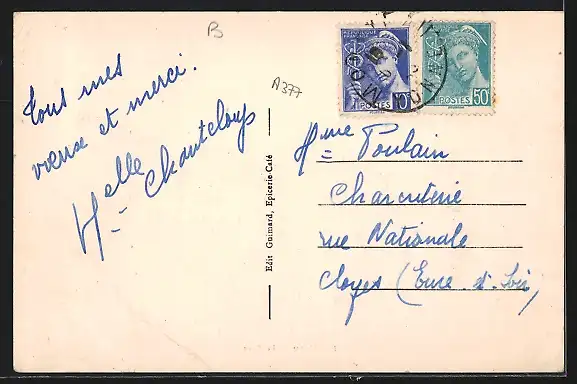 B
A377
Tous mes
vœux et merci.
Melle Chanteloup
Edit Guimard, Epicerie-Café
RÉPUBLIQUE FRANÇAISE
POSTES 10
POSTES 50
Mme Poulain
Charcuterie
rue Nationale
Cloyes (Eure-et-Loir)